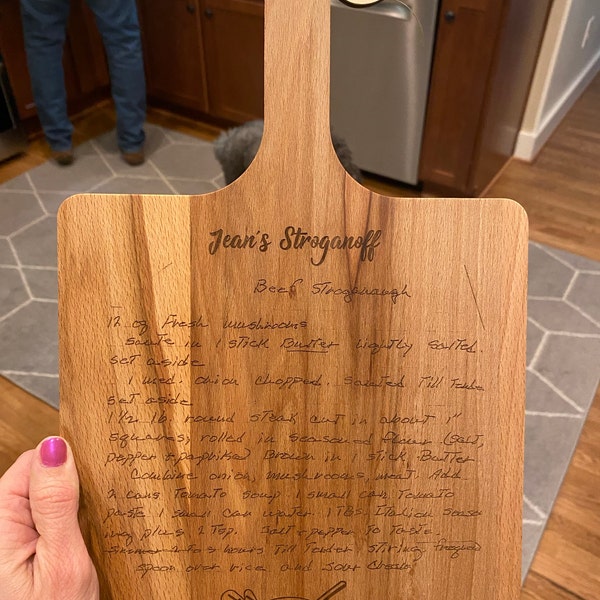 Jean's Stroganoff
Beef Stroganaugh
12 oz Fresh mushrooms
saute in 1 stick Butter Lightly Salted.
set aside
1 med. onion chopped. sauted Till Tender
set aside
1 1/2 lb. round steak cut in about 1"
squares, rolled in seasoned flour (salt,
pepper & paprika) Brown in 1 stick Butter
Combine onion, mushrooms, meat. Add
2 cans Tomato soup 1 small can Tomato
paste 1 small can water 1 TBS. Italian Seaso
ing plus 2 Tsp. Salt & pepper To Taste
2 to 3 hours Till Tender, stiring
spoon over rice and sour cream